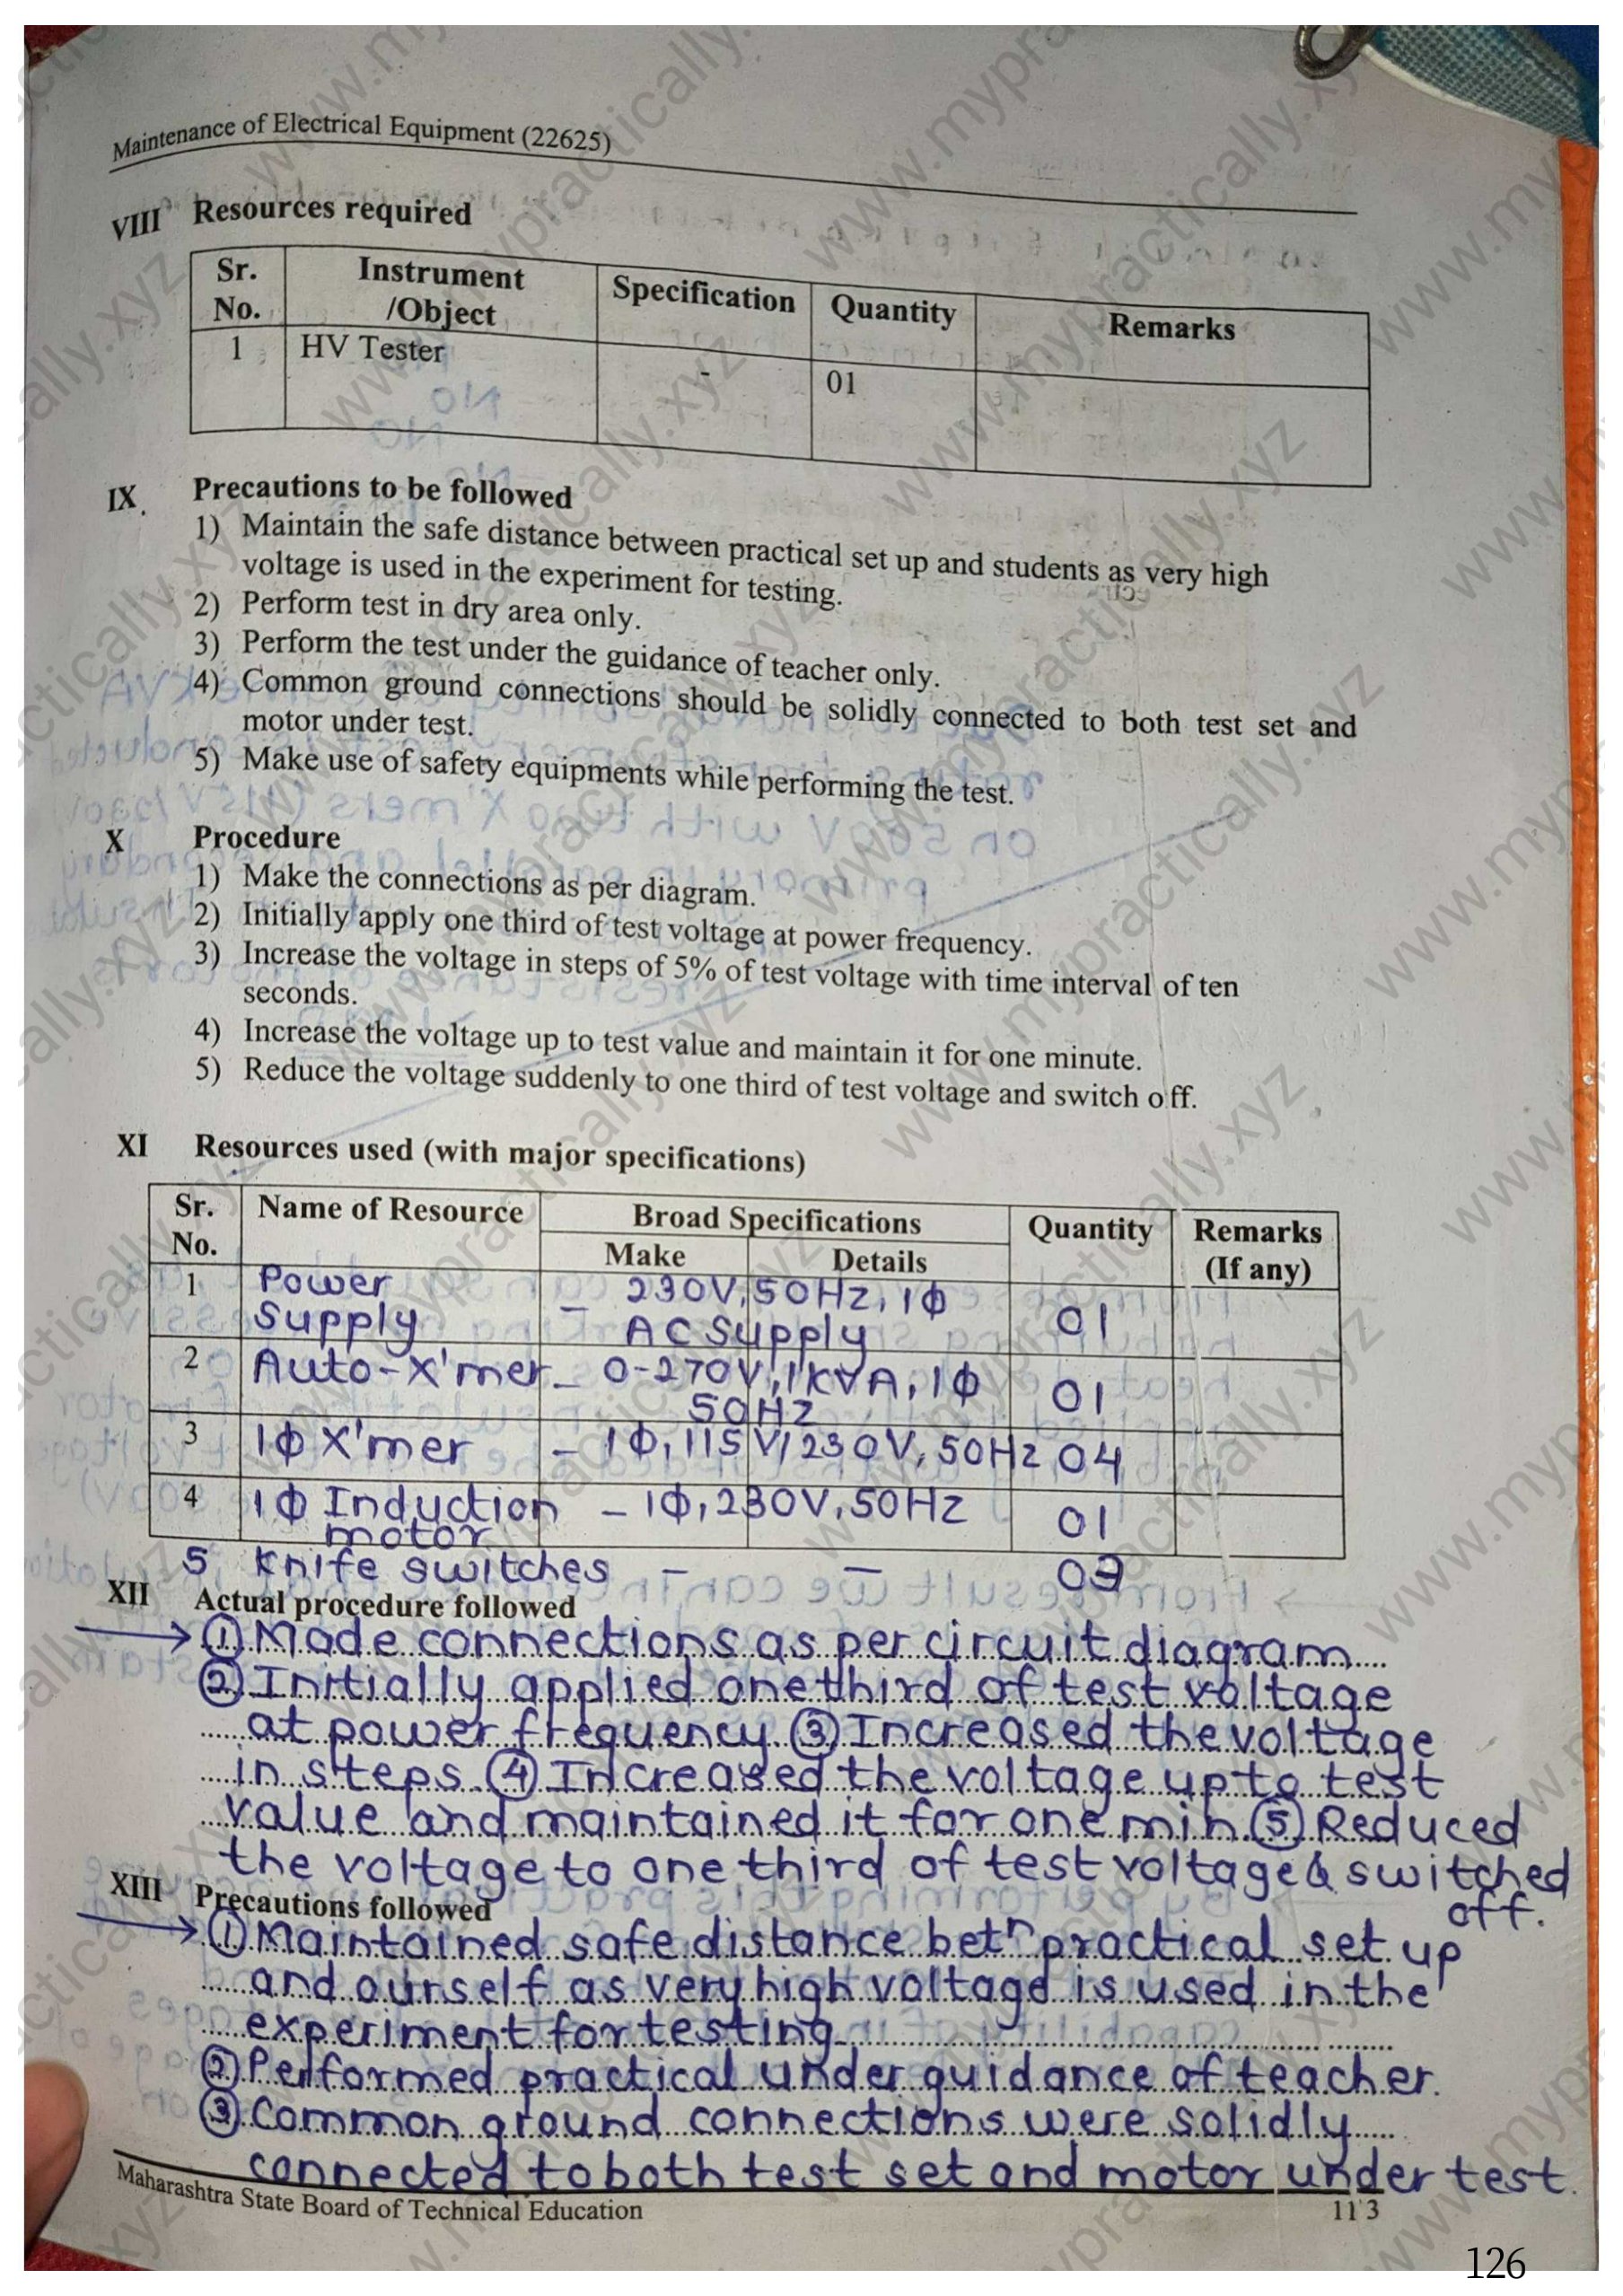 Maintenance of Electrical Equipment (22625)
VIII Resources required
Sr. No. Instrument /Object Specification Quantity Remarks
1 HV Tester - 01
IX. Precautions to be followed
1) Maintain the safe distance between practical set up and students as very high
voltage is used in the experiment for testing.
2) Perform test in dry area only.
3) Perform the test under the guidance of teacher only.
4) Common ground connections should be solidly connected to both test set and
motor under test.
5) Make use of safety equipments while performing the test.
X Procedure
1) Make the connections as per diagram.
2) Initially apply one third of test voltage at power frequency.
3) Increase the voltage in steps of 5% of test voltage with time interval of ten
seconds.
4) Increase the voltage up to test value and maintain it for one minute.
5) Reduce the voltage suddenly to one third of test voltage and switch off.
XI Resources used (with major specifications)
Sr. No. Name of Resource Broad Specifications Quantity Remarks (If any)
Make Details
1 Power Supply - 230V, 50Hz, 1ϕ AC Supply 01
2 Auto-X'mer - 0-270V, 1KVA, 1ϕ 50Hz 01
3 1ϕ X'mer - 1ϕ, 115V/230V, 50Hz 04
4 1ϕ Induction motor - 1ϕ, 230V, 50Hz 01
5 Knife switches - -
XII Actual procedure followed
→ ① Made connections as per circuit diagram
② Initially applied one third of test voltage
at power frequency. ③ Increased the voltage
in steps. ④ Increased the voltage upto test
value and maintained it for one min. ⑤ Reduced
the voltage to one third of test voltage & switched
off.
XIII Precautions followed
→ ① Maintained safe distance betⁿ practical set up
and ourself as very high voltage is used in the
experiment for testing.
② Performed practical under guidance of teacher.
③ Common ground connections were solidly
connected to both test set and motor under test.
Maharashtra State Board of Technical Education 113
126
www.mypractically.xyz